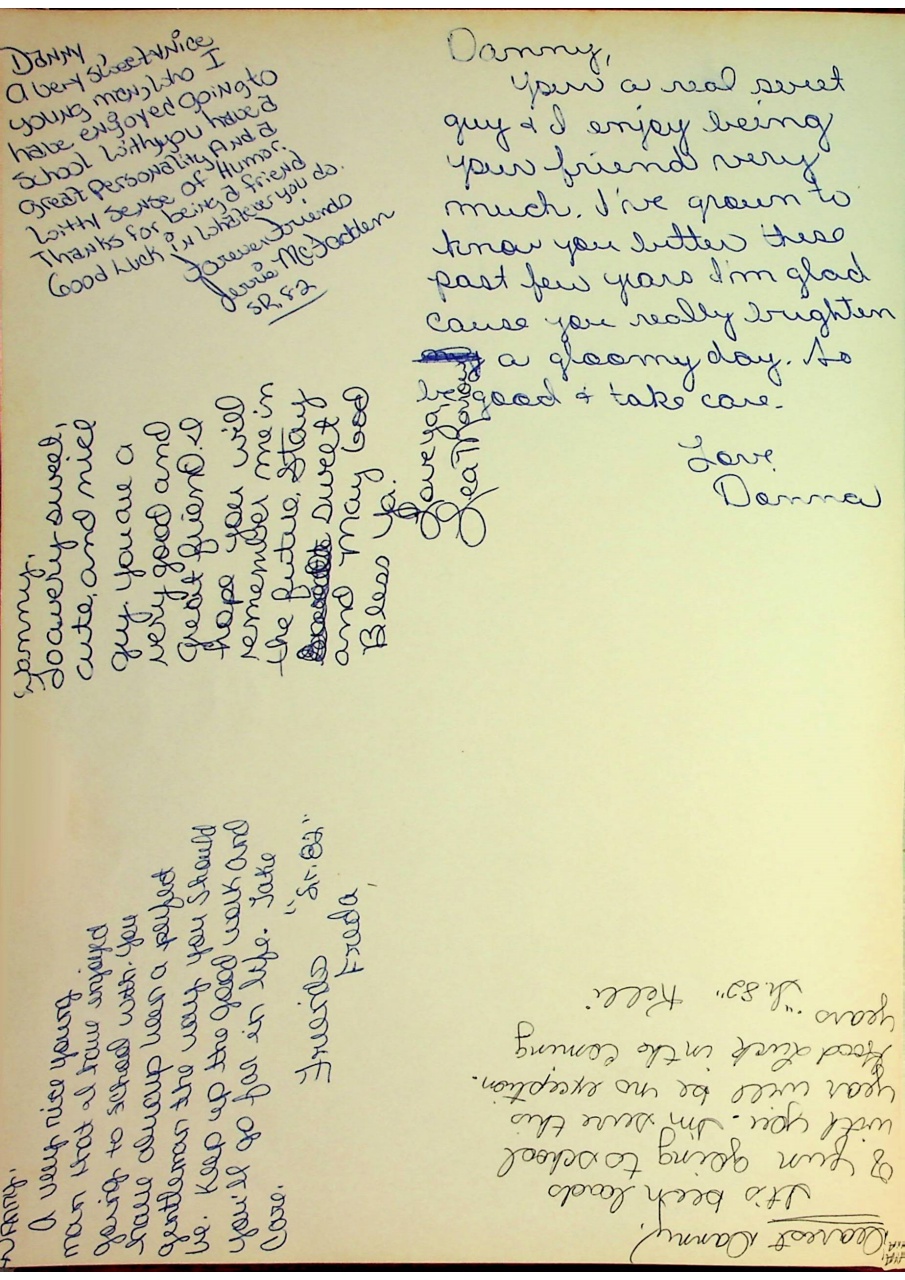 Danny,
A very sweet, nice
young man, who I
have enjoyed going to
School with, you have a
great Personality And a
witty Sense of Humor.
Thanks for being a friend
Good Luck in whatever you do.
Forever Friends
Jerrie McFadden
SR. 82
Danny,
Your a real sweet
guy & I enjoy being
your friend very
much. I've grown to
know you better these
past few years I'm glad
cause you really brighten
a gloomy day. So
be good & take care.
Love
Donna
Danny,
To a very sweet,
cute, and nice
guy you are a
very good and
great friend. I
hope you will
remember me in
the future. Stay
sweet
and May God
Bless Ya.
Love Ya,
Lea
Danny,
A very nice young
man that I have enjoyed
going to school with. You
have always been a perfect
gentleman the way you should
be. Keep up the good work and
you'll go far in life. Take
care.
Friends "Sr. 82"
Freda,
Dearest Danny,
It's been loads
of fun going to school
with you. I'm sure this
year will be no exception.
Good Luck in the coming
years.
"Jr. 82" Kelli